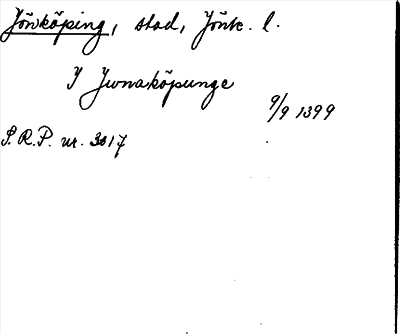 Jönköping, stad, Jönk. l.
I Jwnakøpunge
9/9 1399
S.R.P. nr. 3017